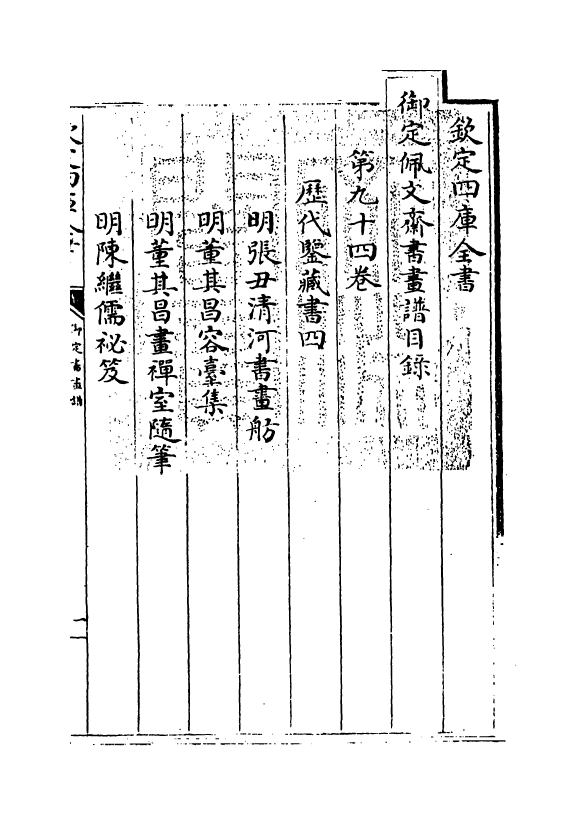 欽定四庫全書
御定佩文齋書畫譜目錄
第九十四卷
歷代鑒藏書四
明張丑清河書畫舫
明董其昌容臺集
明董其昌畫禪室隨筆
明陳繼儒祕笈